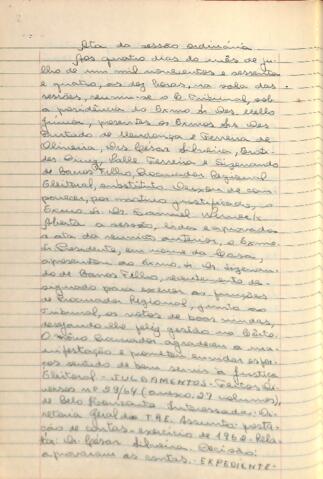 Ata da sessão ordinária
Aos quatro dias do mês de ju-
lho de um mil novecentos e sessenta
e quatro, às dez horas, na sala das
sessões, reuniu-se o E. Tribunal, sob
a presidência do Exmo Sr. Des. Mello
Júnior, presentes os Exmos Srs. Des.
Furtado de Mendonça e Ferreira de
Oliveira, Drs. César Silveira,
Valle Ferreira e
de Barros Filho, Procurador Regional
Eleitoral, substituto. Deixou de com-
parecer, por motivo justificado, o
Exmo Sr. Dr. Samuel
Aberta a sessão, lida e aprovada
a ata da reunião anterior, o Exmo.
Sr. Presidente, em nome da Casa,
apresentou ao Exmo. Sr. Dr.
do de Barros Filho, recentemente de-
signado para exercer as funções
de Procurador Regional, junto ao
Tribunal, os votos de boas vindas,
desejando-lhe feliz gestão na Côrte.
O novo Procurador agradeceu a ma-
nifestação e prometeu envidar esfor-
ços sentido de bem servir à Justiça
Eleitoral. - JULGAMENTOS - Feitos Di-
versos nº 29/64 (anexo: 27 volumes),
de Belo Horizonte. Interessada: Se-
cretaria Geral do T.R.E. Assunto: presta-
ção de contas - exercício de 1962. Rela-
tor: Dr. César Silveira. Decisão:
aprovaram as contas. - EXPEDIENTE -